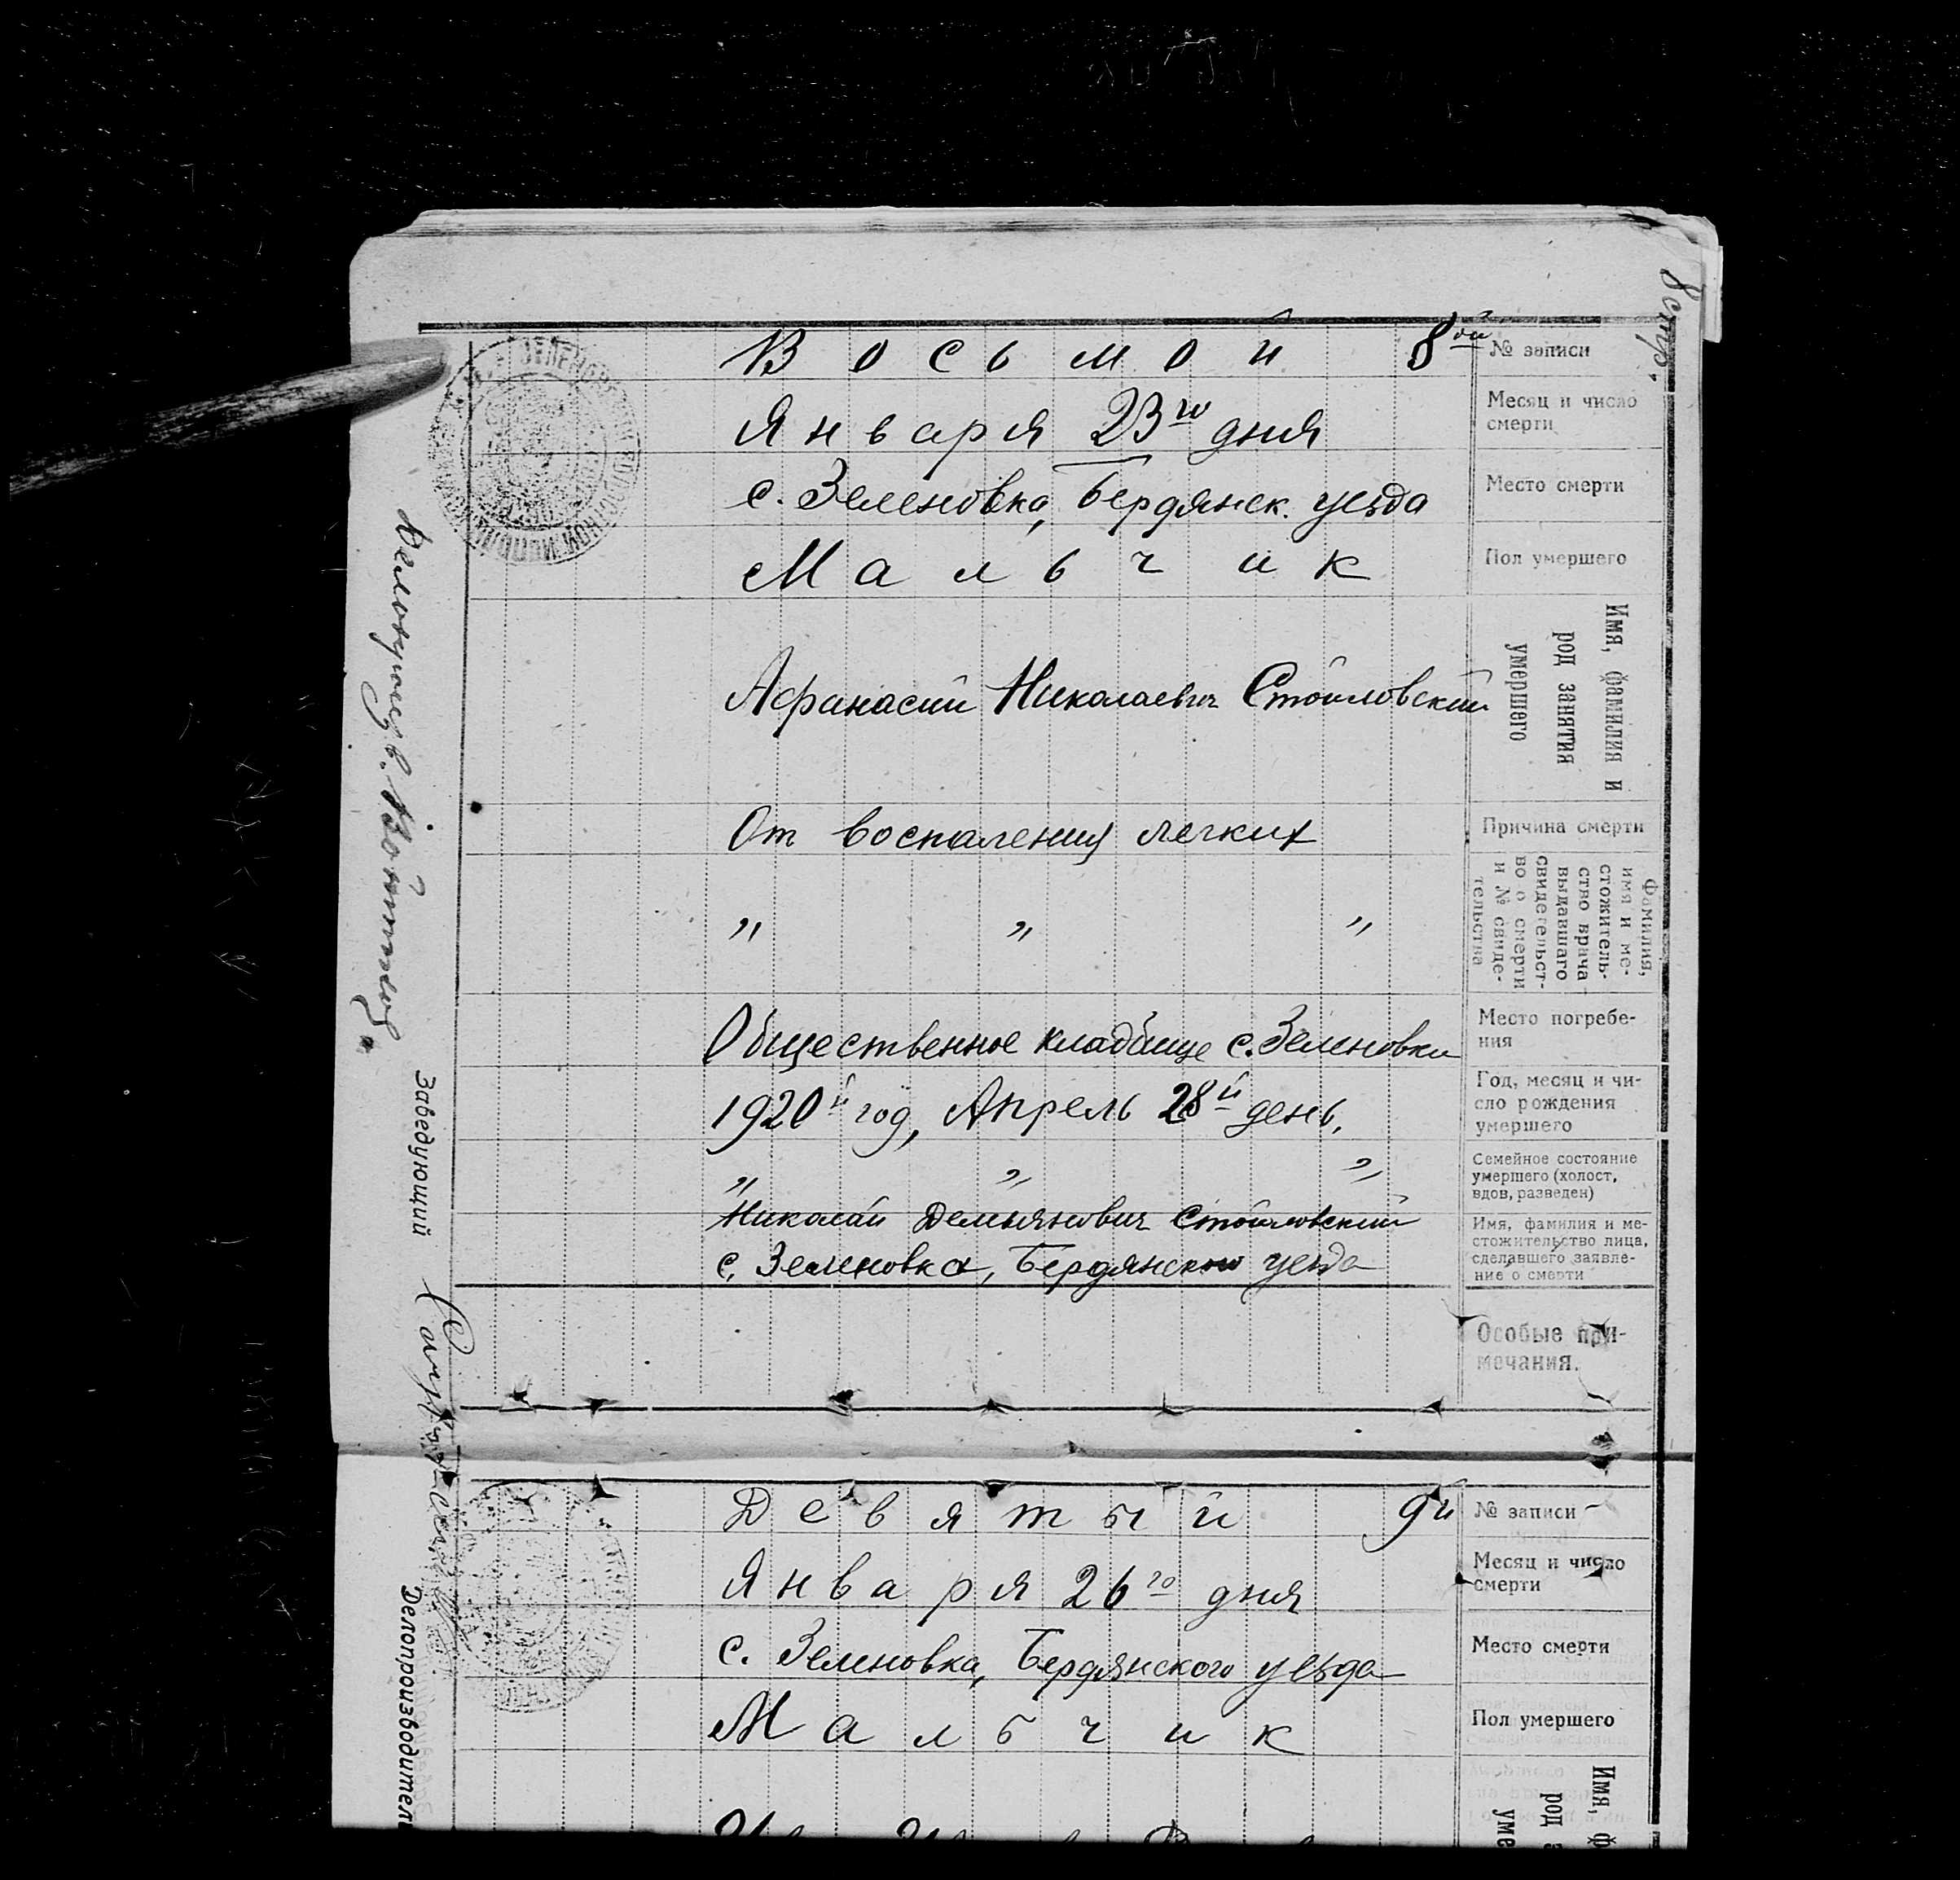 8 стр.
Восьмой 8ой
№ записи
Января 23го дня
Месяц и число
смерти
с. Зеленовка, Бердянск. уезда
Место смерти
Мальчик
Пол умершего
Афанасий Николаевич Стоиловский
Имя, фамилия и
род занятия
умершего
От воспаления легких
Причина смерти
" " "
Фамилия,
имя и ме-
стожитель-
ство врача
выдавшаго
свидетельст-
во о смерти
и № свиде-
тельства
Общественное кладбище с. Зеленовки
Место погребе-
ния
1920й год, Апрель 28й день.
Год, месяц и чи-
сло рождения
умершего
" " "
Семейное состояние
умершего (холост,
вдов, разведен)
Николай Демьянович Стоиловский
с. Зеленовка, Бердянского уезда
Имя, фамилия и ме-
стожительство лица,
сделавшего заявле-
ние о смерти
Особые при-
мечания.
Заведующий
Девятый 9й
№ записи
Января 26го дня
Месяц и число
смерти
с. Зеленовка, Бердянского уезда
Место смерти
Мальчик
Пол умершего
Имя, ф
род з
уме
Делопроизводител